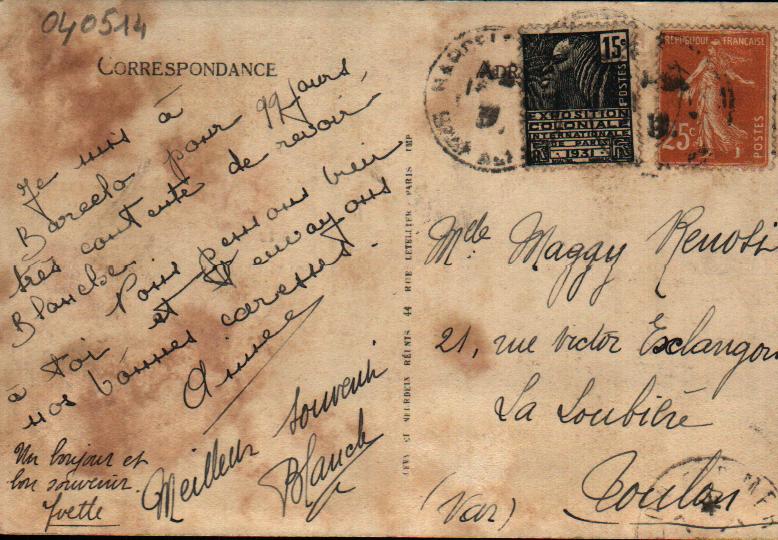 040514
CORRESPONDANCE
Je suis à
Barcelo pour 99 jours,
très contente de revoir
Blanche. Nous pensons bien
à toi et t'envoyons
nos bonnes caresses.
Aimée
Meilleur souvenir
Blanche
Un bonjour et
bon souvenir.
Yvette
RÉUNIS 44 RUE LETELLIER PARIS IMP
ADR
15c
POSTES
EXPOSITION
COLONIALE
INTERNATIONALE
DE PARIS
1931
REPUBLIQUE FRANÇAISE
25c
POSTES
Mlle Maggy Renosi
21, rue Victor Esclangon
La Loubière
Toulon
(Var)